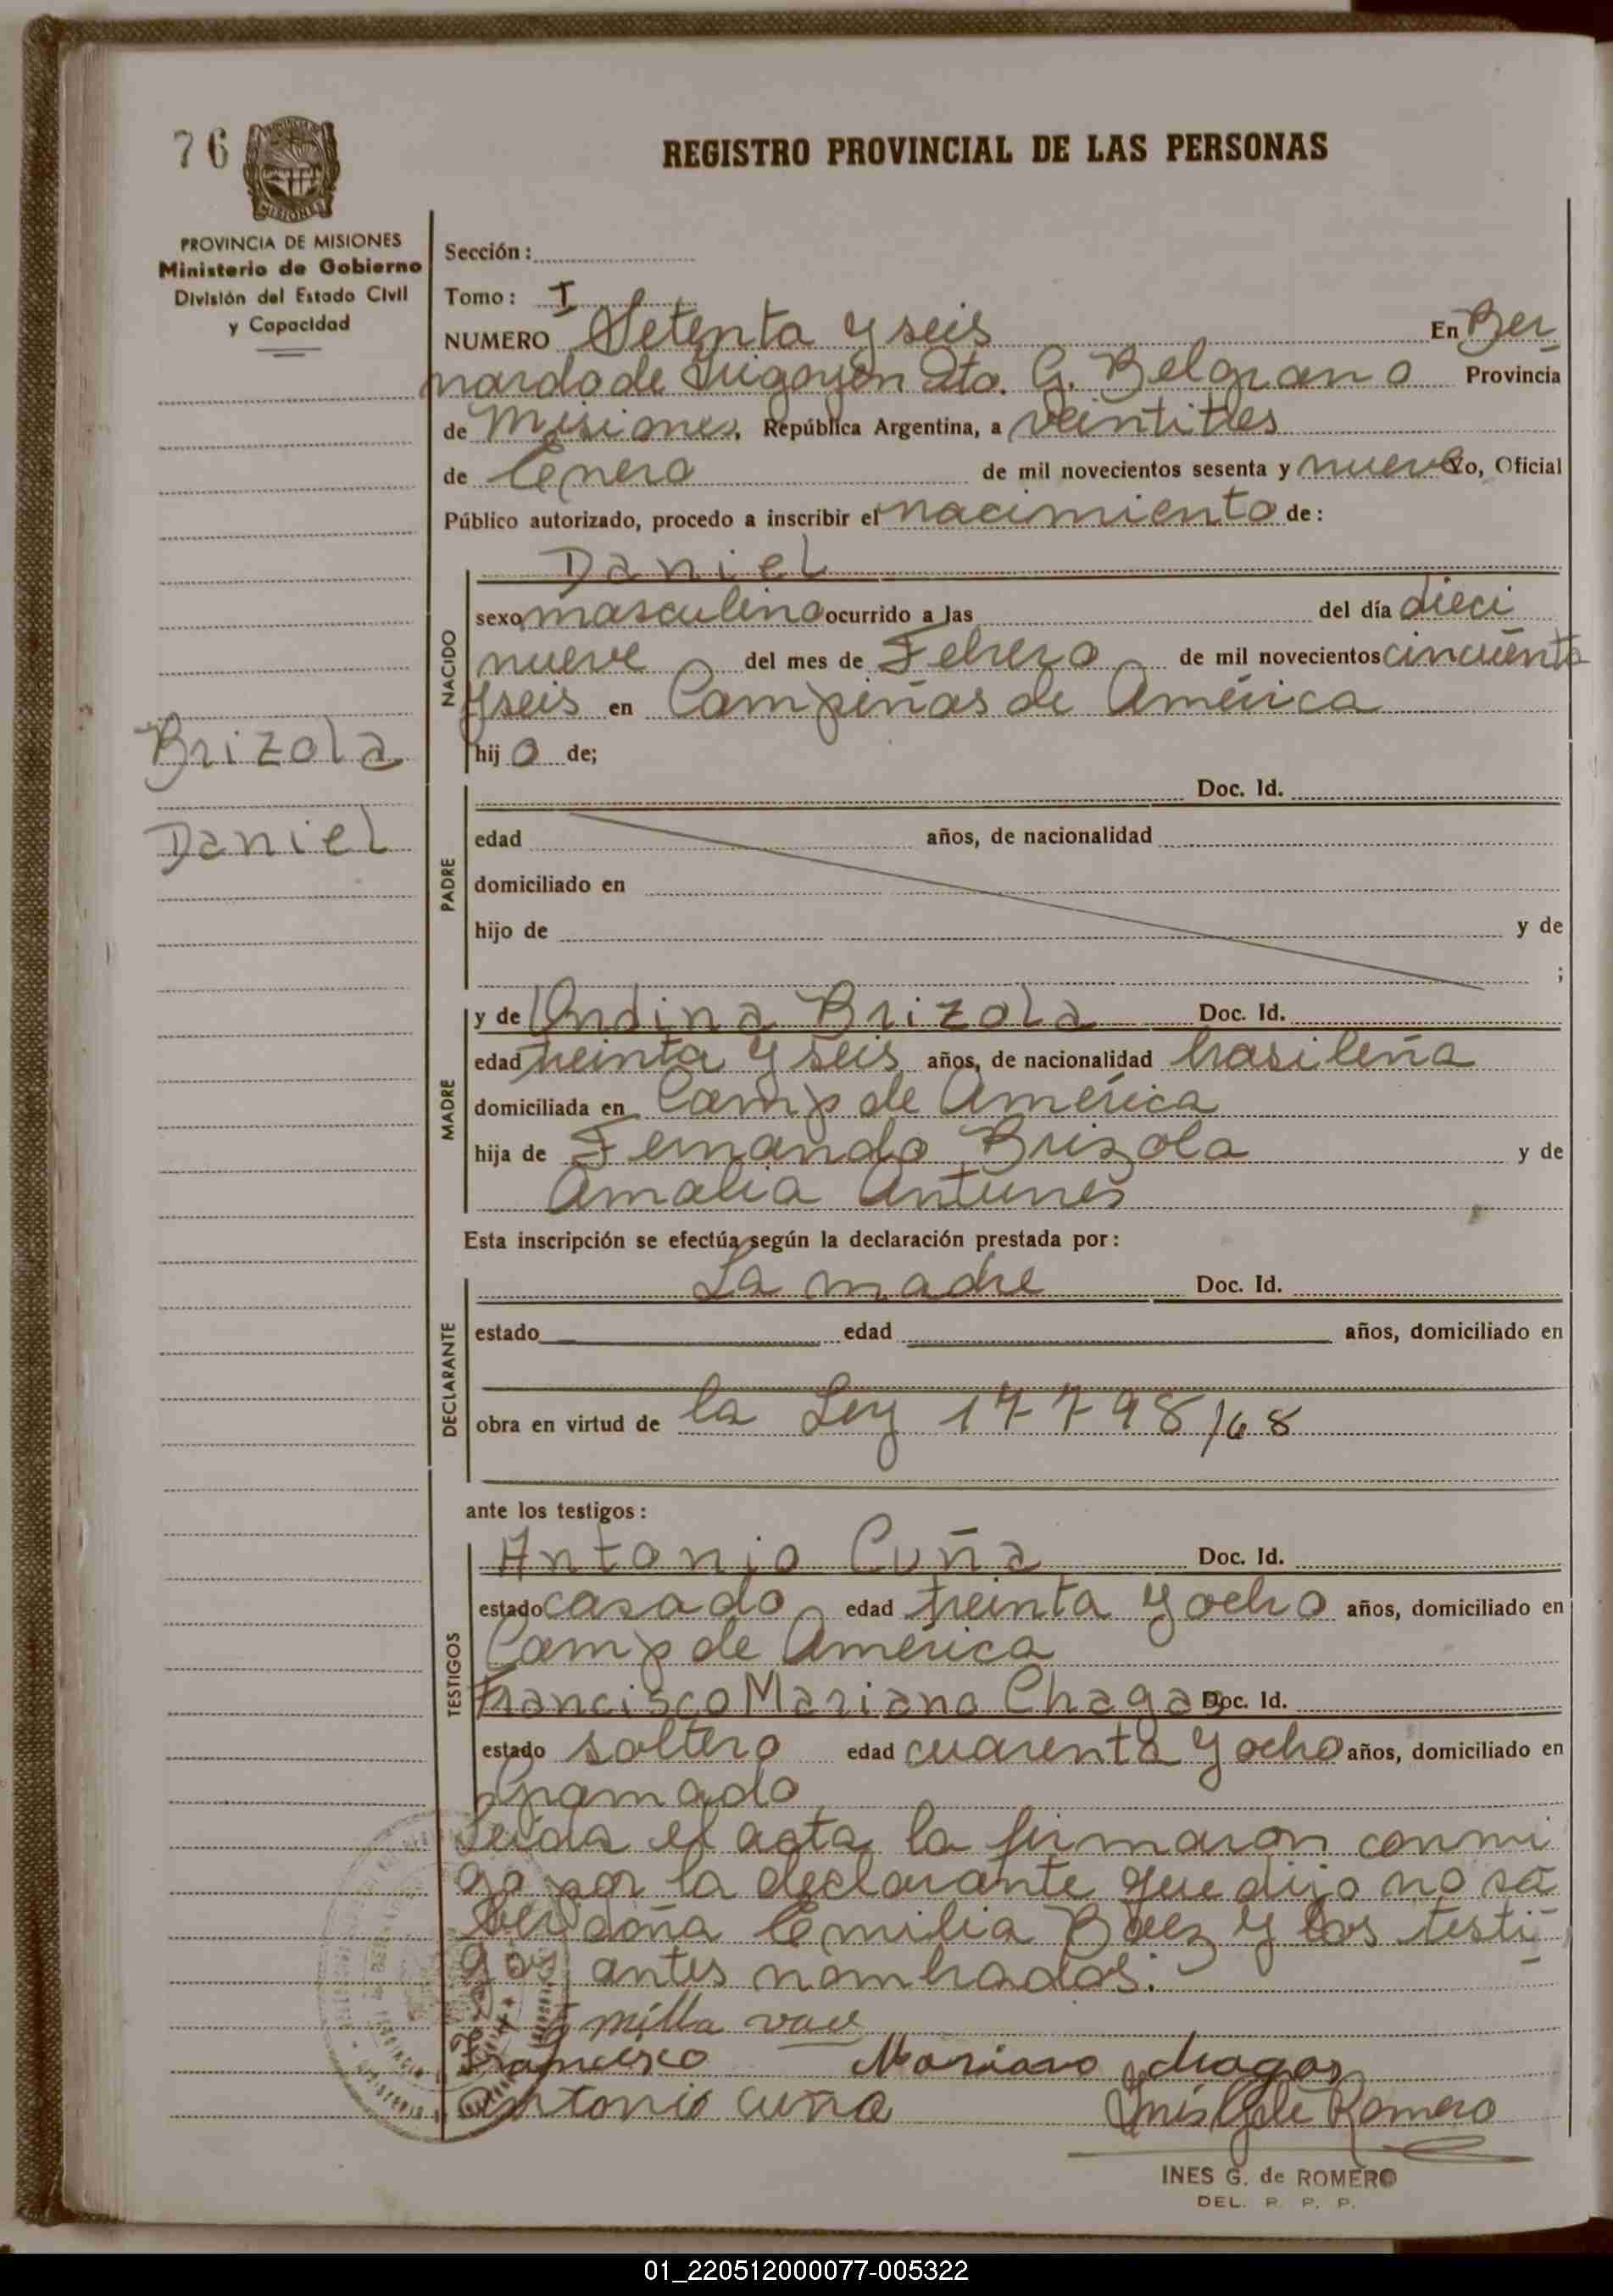 76
MISIONES
REGISTRO PROVINCIAL DE LAS PERSONAS
PROVINCIA DE MISIONES
Ministerio de Gobierno
División del Estado Civil
y Capacidad
Sección:
Tomo: I
NUMERO Setenta y seis En Ber
nardo de Irigoyen Dto. G. Belgrano Provincia
de Misiones, República Argentina, a veintitres
de Enero de mil novecientos sesenta y nueve Yo, Oficial
Público autorizado, procedo a inscribir el nacimiento de:
NACIDO
Daniel
sexo masculino ocurrido a las del día dieci
nueve del mes de Febrero de mil novecientos cincuenta
y seis en Campiñas de América
hijo de;
Brizola
Daniel
PADRE
Doc. Id.
edad años, de nacionalidad
domiciliado en
hijo de y de
;
MADRE
y de Ondina Brizola Doc. Id.
edad treinta y seis años, de nacionalidad brasileña
domiciliada en Camp de América
hija de Fernando Brizola y de
Amalia Antunes
Esta inscripción se efectúa según la declaración prestada por:
DECLARANTE
La madre Doc. Id.
estado edad años, domiciliado en
obra en virtud de la Ley 17798/68
ante los testigos:
TESTIGOS
Antonio Cuña Doc. Id.
estado casado edad treinta y ocho años, domiciliado en
Camp de América
Francisco Mariano Chagas Doc. Id.
estado soltero edad cuarenta y ocho años, domiciliado en
Gramado
Leida el acta la firmaron conmi
go por la declarante que dijo no sa
ber doña Emilia Baez y los testi
gos antes nombrados.
Francisco Mariano chagas
antonio cuña Inés G de Romero
INES G. de ROMERO
DEL. R. P. P.
01_220512000077-005322